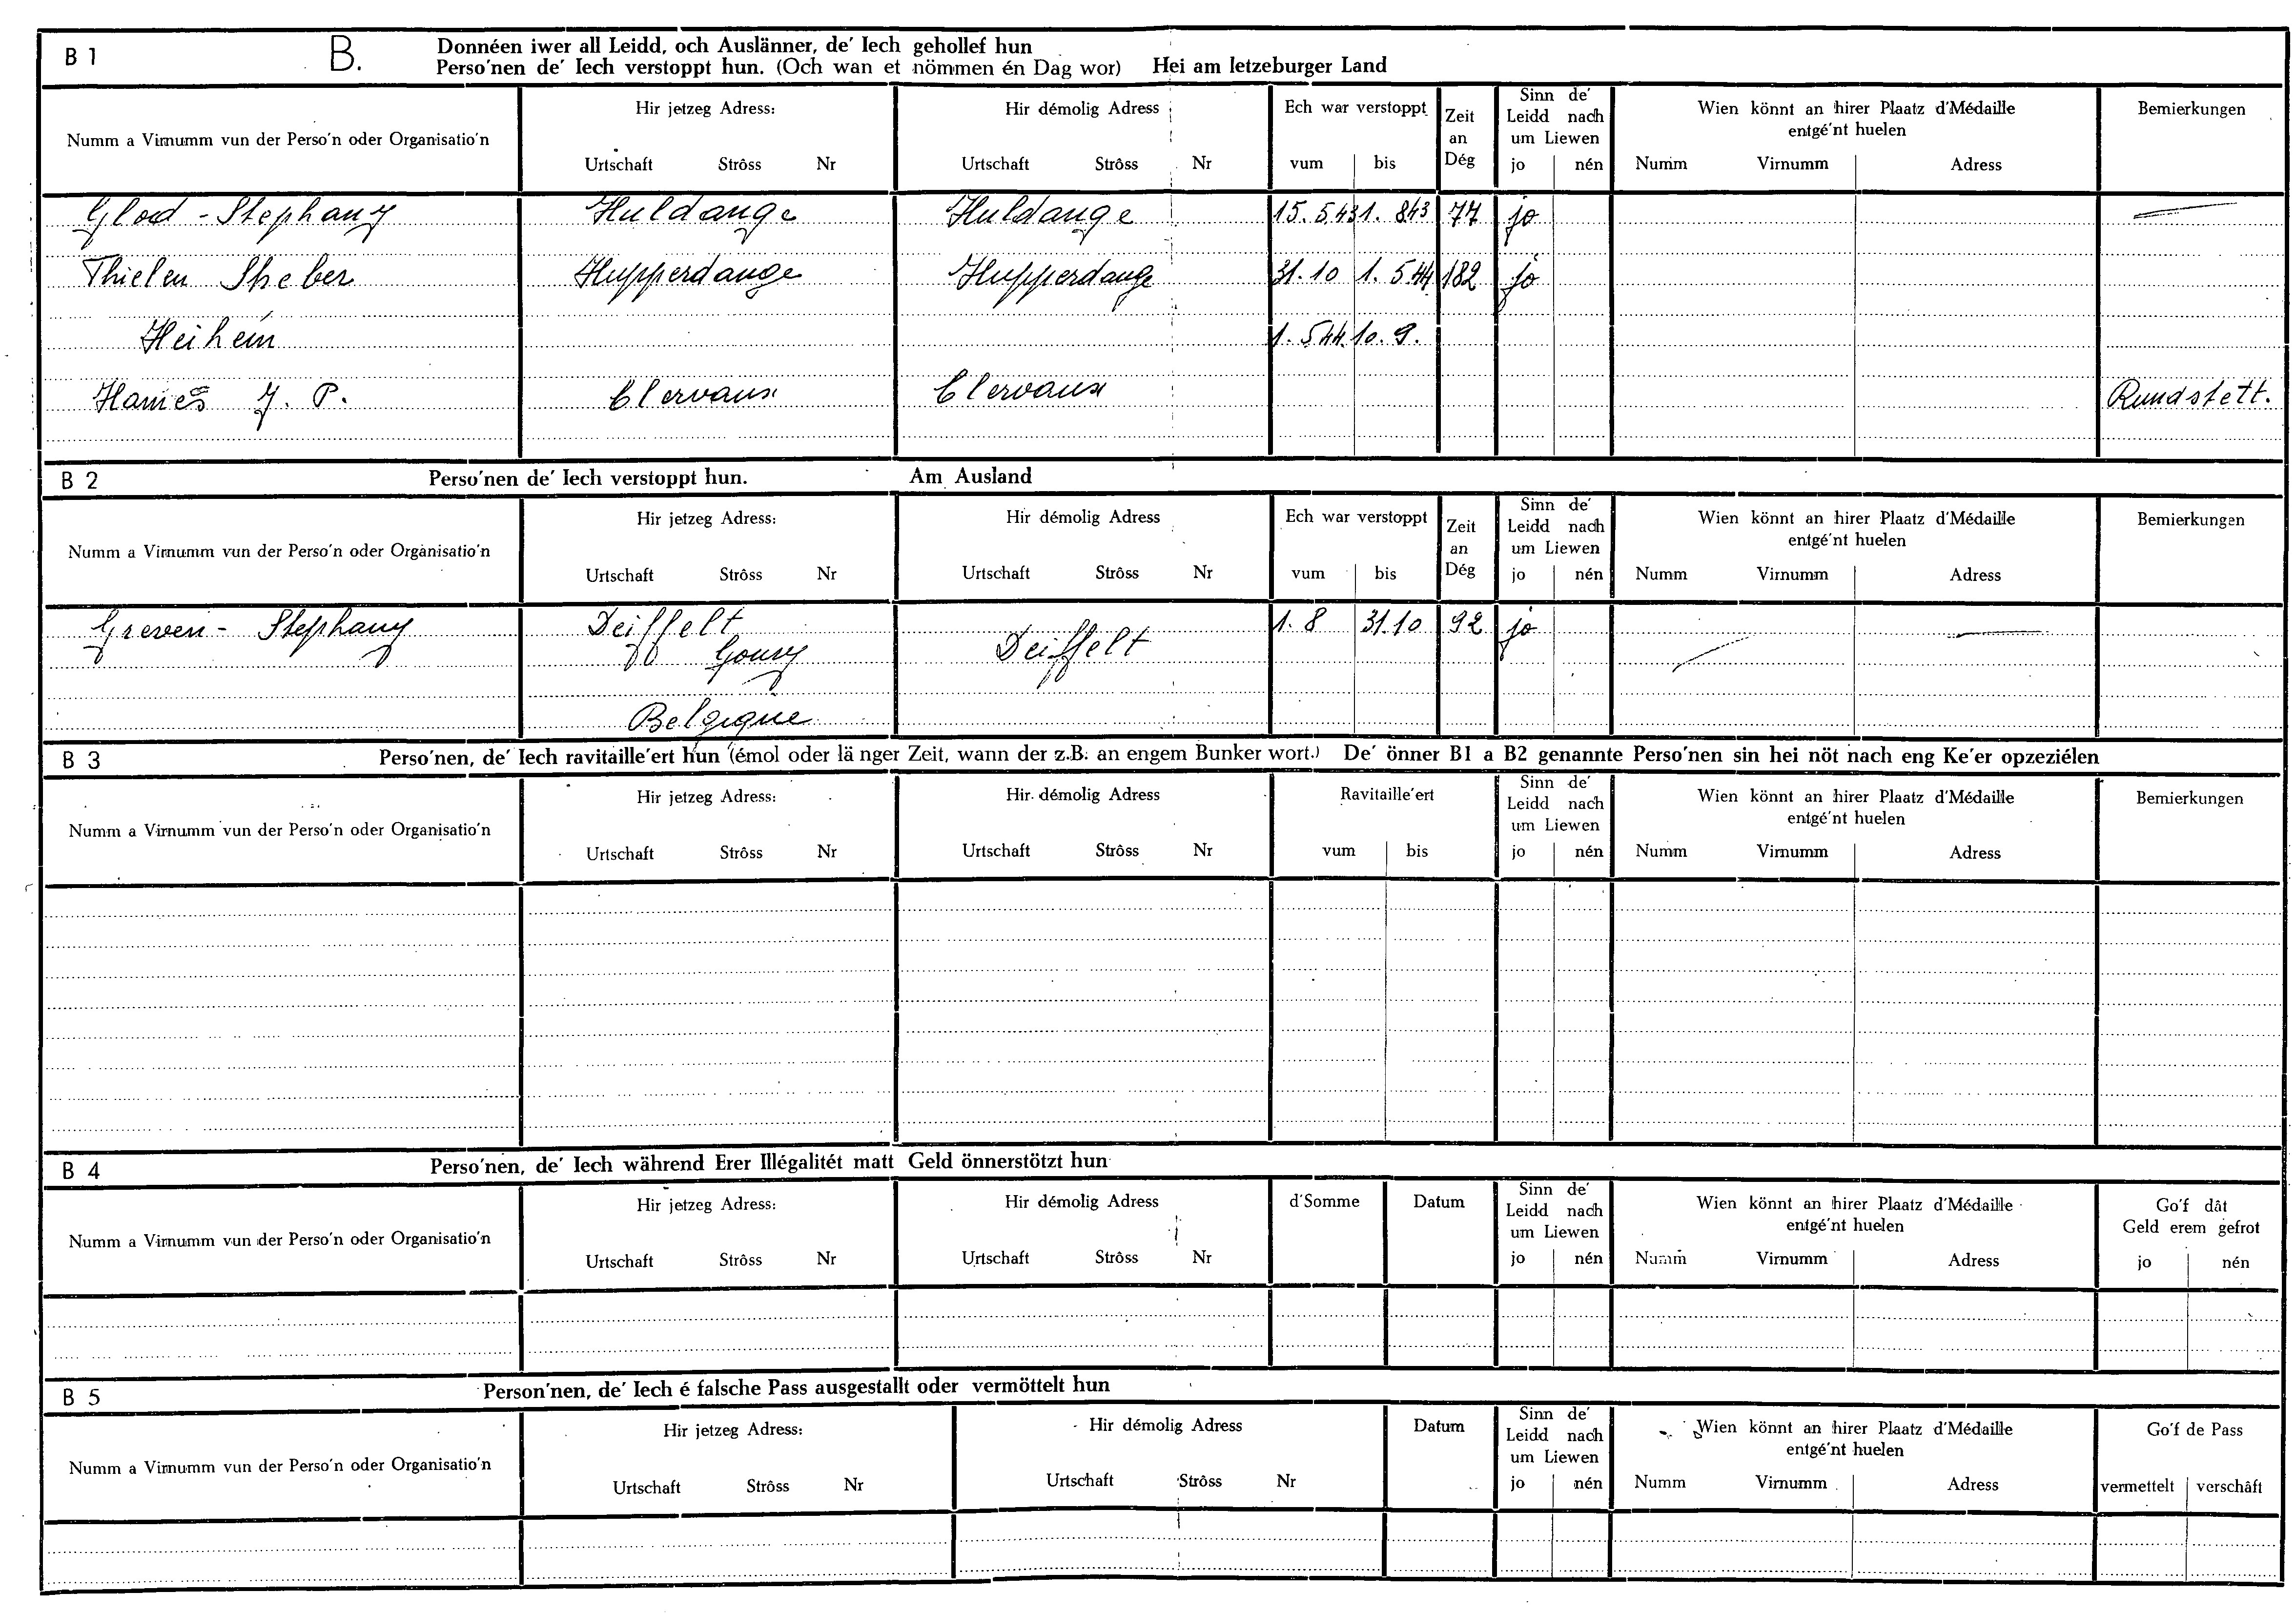 B 1 B. Donnéen iwer all Leidd, och Auslänner, de' Iech gehollef hun
Perso'nen de' Iech verstoppt hun. (Och wan et nömmen én Dag wor) Hei am letzeburger Land
Numm a Virnumm vun der Perso'n oder Organisatio'n Hir jetzeg Adress: Hir démolig Adress Ech war verstoppt Zeit an Dég Sinn de' Leidd nach um Liewen Wien könnt an hirer Plaatz d'Médaille entgé'nt huelen Bemierkungen
Urtschaft Strôss Nr Urtschaft Strôss Nr vum bis jo nén Numm Virnumm Adress
Glod - Stephany Huldange Huldange 15. 5.43 1. 843 77 jo
Thielen Hupperdange Hupperdange 31. 10 1. 5.44 182 jo
Heihein 1. 544. 10. 9.
J. P. Clervaux Clervaux Rundstett.
B 2 Perso'nen de' Iech verstoppt hun. Am Ausland
Numm a Virnumm vun der Perso'n oder Organisatio'n Hir jetzeg Adress: Hir démolig Adress Ech war verstoppt Zeit an Dég Sinn de' Leidd nach um Liewen Wien könnt an hirer Plaatz d'Médaille entgé'nt huelen Bemierkungen
Urtschaft Strôss Nr Urtschaft Strôss Nr vum bis jo nén Numm Virnumm Adress
Greven - Stephany Deiffelt 1. 8 31.10 92 jo
Gouvy Deiffelt
Belgique
B 3 Perso'nen, de' Iech ravitaille'ert hun (émol oder länger Zeit, wann der z.B. an engem Bunker wort.) De' önner B1 a B2 genannte Perso'nen sin hei nöt nach eng Ke'er opzeziélen
Numm a Virnumm vun der Perso'n oder Organisatio'n Hir jetzeg Adress: Hir démolig Adress Ravitaille'ert Sinn de' Leidd nach um Liewen Wien könnt an hirer Plaatz d'Médaille entgé'nt huelen Bemierkungen
Urtschaft Strôss Nr Urtschaft Strôss Nr vum bis jo nén Numm Virnumm Adress
B 4 Perso'nen, de' Iech während Erer Illégalitét matt Geld önnerstötzt hun
Numm a Virnumm vun der Perso'n oder Organisatio'n Hir jetzeg Adress: Hir démolig Adress d'Somme Datum Sinn de' Leidd nach um Liewen Wien könnt an hirer Plaatz d'Médaille entgé'nt huelen Go'f dât Geld erem gefrot
Urtschaft Strôss Nr Urtschaft Strôss Nr jo nén Numm Virnumm Adress jo nén
B 5 Person'nen, de' Iech é falsche Pass ausgestallt oder vermöttelt hun
Numm a Virnumm vun der Perso'n oder Organisatio'n Hir jetzeg Adress: Hir démolig Adress Datum Sinn de' Leidd nach um Liewen Wien könnt an hirer Plaatz d'Médaille entgé'nt huelen Go'f de Pass
Urtschaft Strôss Nr Urtschaft Strôss Nr jo nén Numm Virnumm Adress vermettelt verschâft